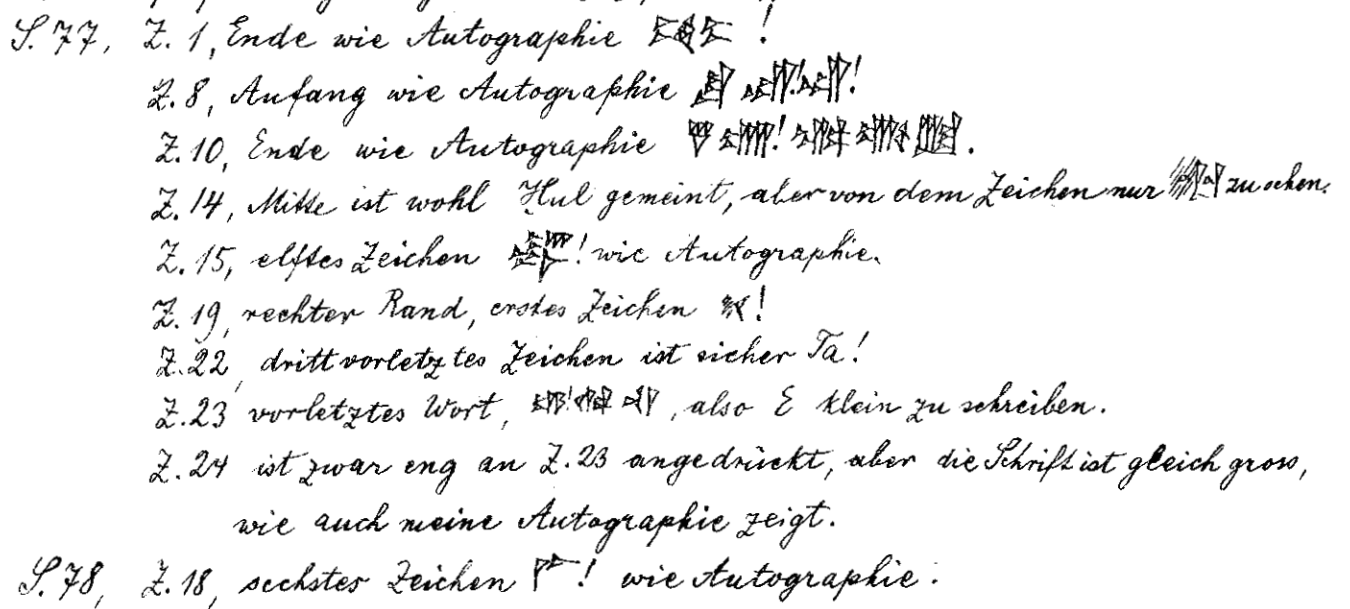 S. 77, Z. 1, Ende wie Autographie !
Z. 8, Anfang wie Autographie ! !
Z. 10, Ende wie Autographie ! .
Z. 14, Mitte ist wohl Ḫul gemeint, aber von dem Zeichen nur zu sehen.
Z. 15, elftes Zeichen ! wie Autographie.
Z. 19, rechter Rand, erstes Zeichen !
Z. 22, drittvorletztes Zeichen ist sicher Ta!
Z. 23 vorletztes Wort, ! , also E klein zu schreiben.
Z. 24 ist zwar eng an Z. 23 angedrückt, aber die Schrift ist gleich gross,
wie auch meine Autographie zeigt.
S. 78, Z. 18, sechstes Zeichen ! wie Autographie.